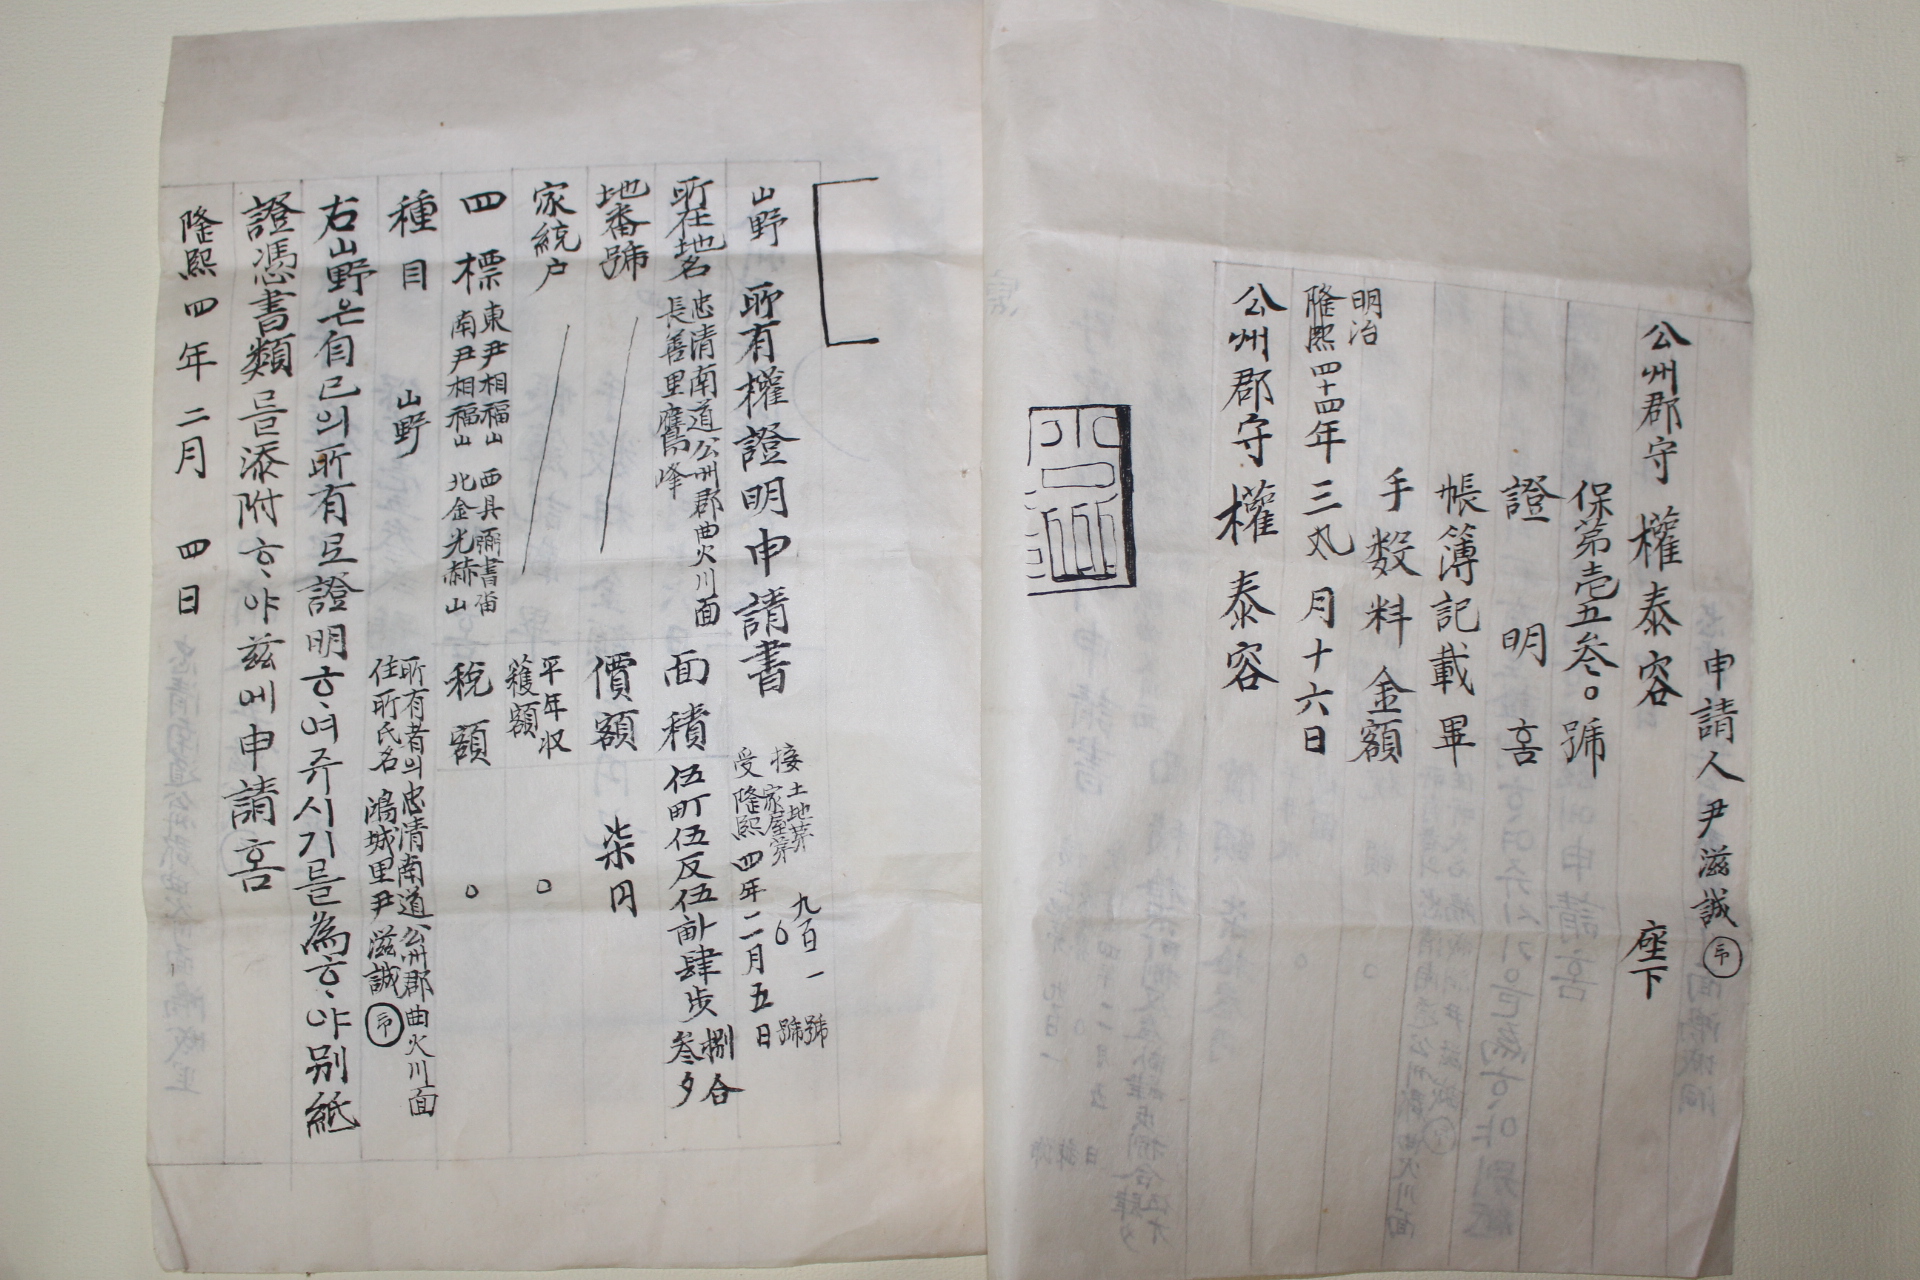 申請人 尹滋誠 印
公州郡守 權泰容 座下
保第壱五叁○號
證明홈
帳簿記載畢
手数料金額
明治
隆熙四十四年三月十六日
公州郡守 權泰容
山野 所有權證明申請書
接 土地第 九百一 號
家屋第 號
受 隆熙四年二月五日
所在地名 忠清南道公州郡曲火川面
長善里鷹峰
面積 伍町伍反伍畝肆步捌合
叁夕
地番號
價額 柒円
家統户
平年収
穫額 ○
四標 東尹相福山 西具彌書畓
南尹相福山 北金光赫山
稅額 ○
種目 山野
所有者의 忠清南道公州郡曲火川面
住所氏名 鴻城里尹滋誠 印
右山野은自己의所有로證明ᄒᆞ여쥬시기를為ᄒᆞ야别紙
證憑書類를添附ᄒᆞ야玆에申請홈
隆熙四年二月 四日